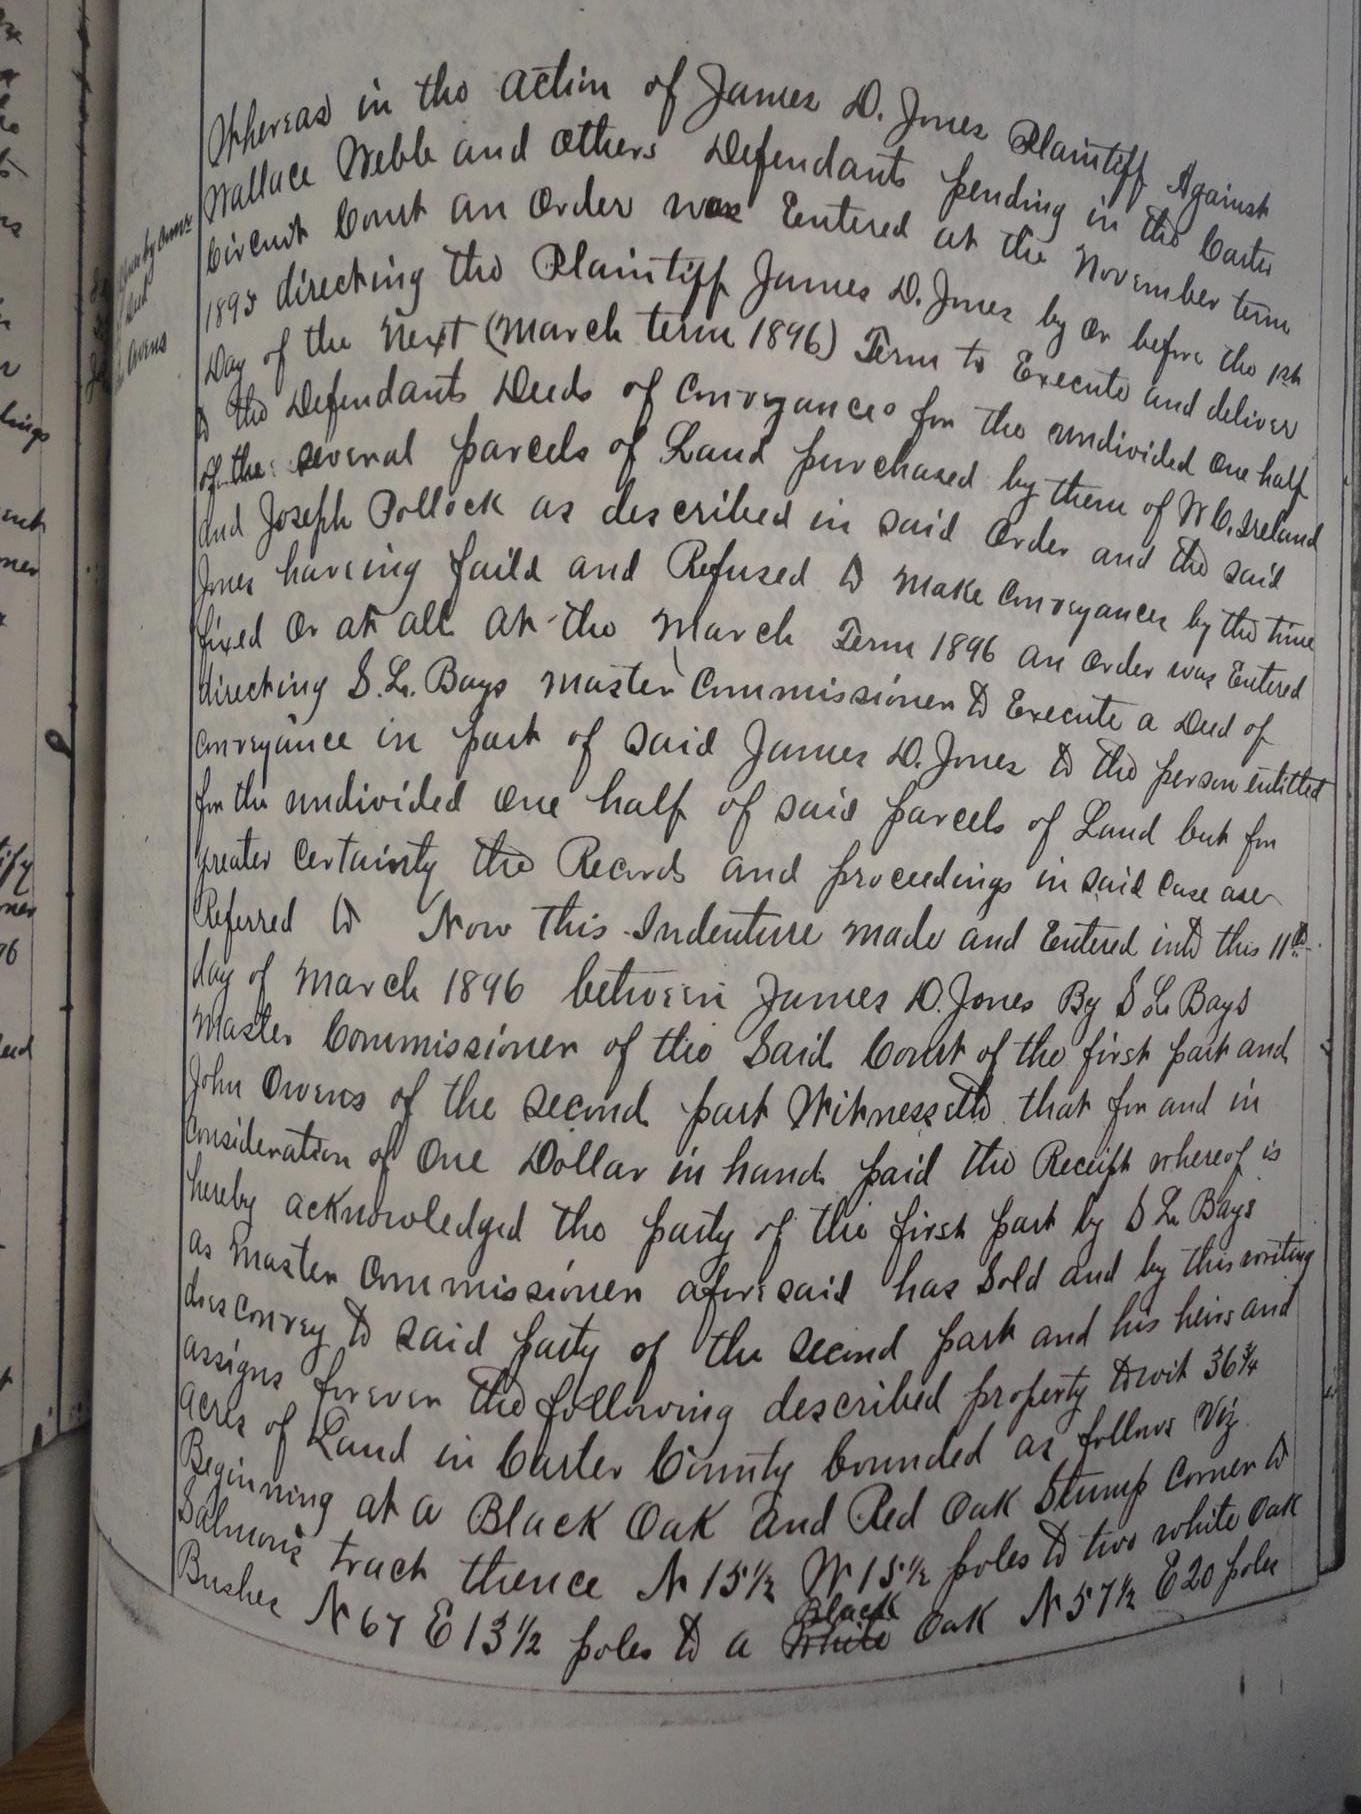 Whereas in the action of James D. Jones Plaintiff Against
Wallace Webb and others Defendants pending in the Carter
Circuit Court an Order was Entered at the November term
1895 directing the Plaintiff James D. Jones by or before the 1st
Day of the Next (March term 1896) Term to Execute and deliver
to the Defendants Deeds of Conveyances for the undivided one half
of the several parcels of Land purchased by them of W.C. Ireland
and Joseph Pollock as described in said Order and the said
Jones having faild and Refused to make Conveyances by the time
fixed Or at all At the March Term 1896 an order was Entered
directing S.L. Bays Master Commissioner to Execute a Deed of
Conveyance in part of said James D. Jones to the person entitled
for the undivided one half of said parcels of Land but for
greater Certainty the Records and proceedings in said Case are
Referred to Now this Indenture made and Entered into this 11th
day of March 1896 between James D. Jones By S L Bays
Master Commissioner of the Said Court of the first part and
John Owens of the second part Witnesseth that for and in
Consideration of One Dollar in hand paid the Receipt whereof is
hereby acknowledged the party of the first part by S L Bays
as Master Commissioner aforesaid has Sold and by this writing
does convey to said party of the second part and his heirs and
assigns forever the following described property towit 36 3/4
acres of Land in Carter County bounded as follows Viz
Beginning at a Black Oak and Red Oak Stump Corner to
Salmons tract thence N 15 1/2 W 15 1/2 poles to two white oak
Bushes N 67 E 13 1/2 poles to a White Black Oak N 57 1/2 E 20 poles
Deed
Owens